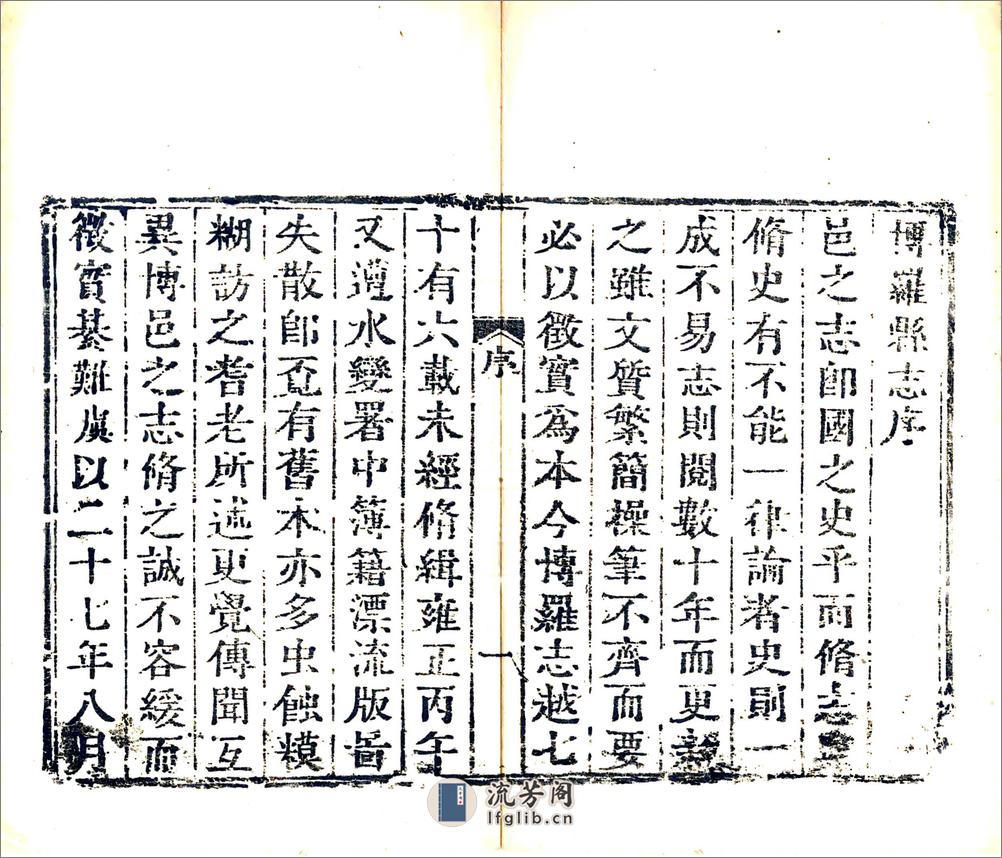 博羅縣志序
邑之志卽國之史乎而脩志
脩史有不能一律論者史則一
成不易志則閱數十年而更新
之雖文質繁簡操筆不齊而要
必以徵實爲本今博羅志越七
序
一
十有六載未經脩緝雍正丙午
又遭水變署中簿籍漂流版啚
失散卽覔有舊本亦多虫蝕糢
糊訪之耆老所述更覺傳聞互
異博邑之志脩之誠不容緩而
徵實綦難虞以二十七年八月
流芳阁
lfglib.cn